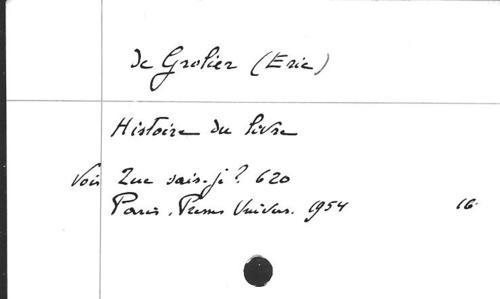 de Grolier (Eric)
Histoire du livre
Voir Que sais-je ? 620
Paris, Presses Univers. 1954 16